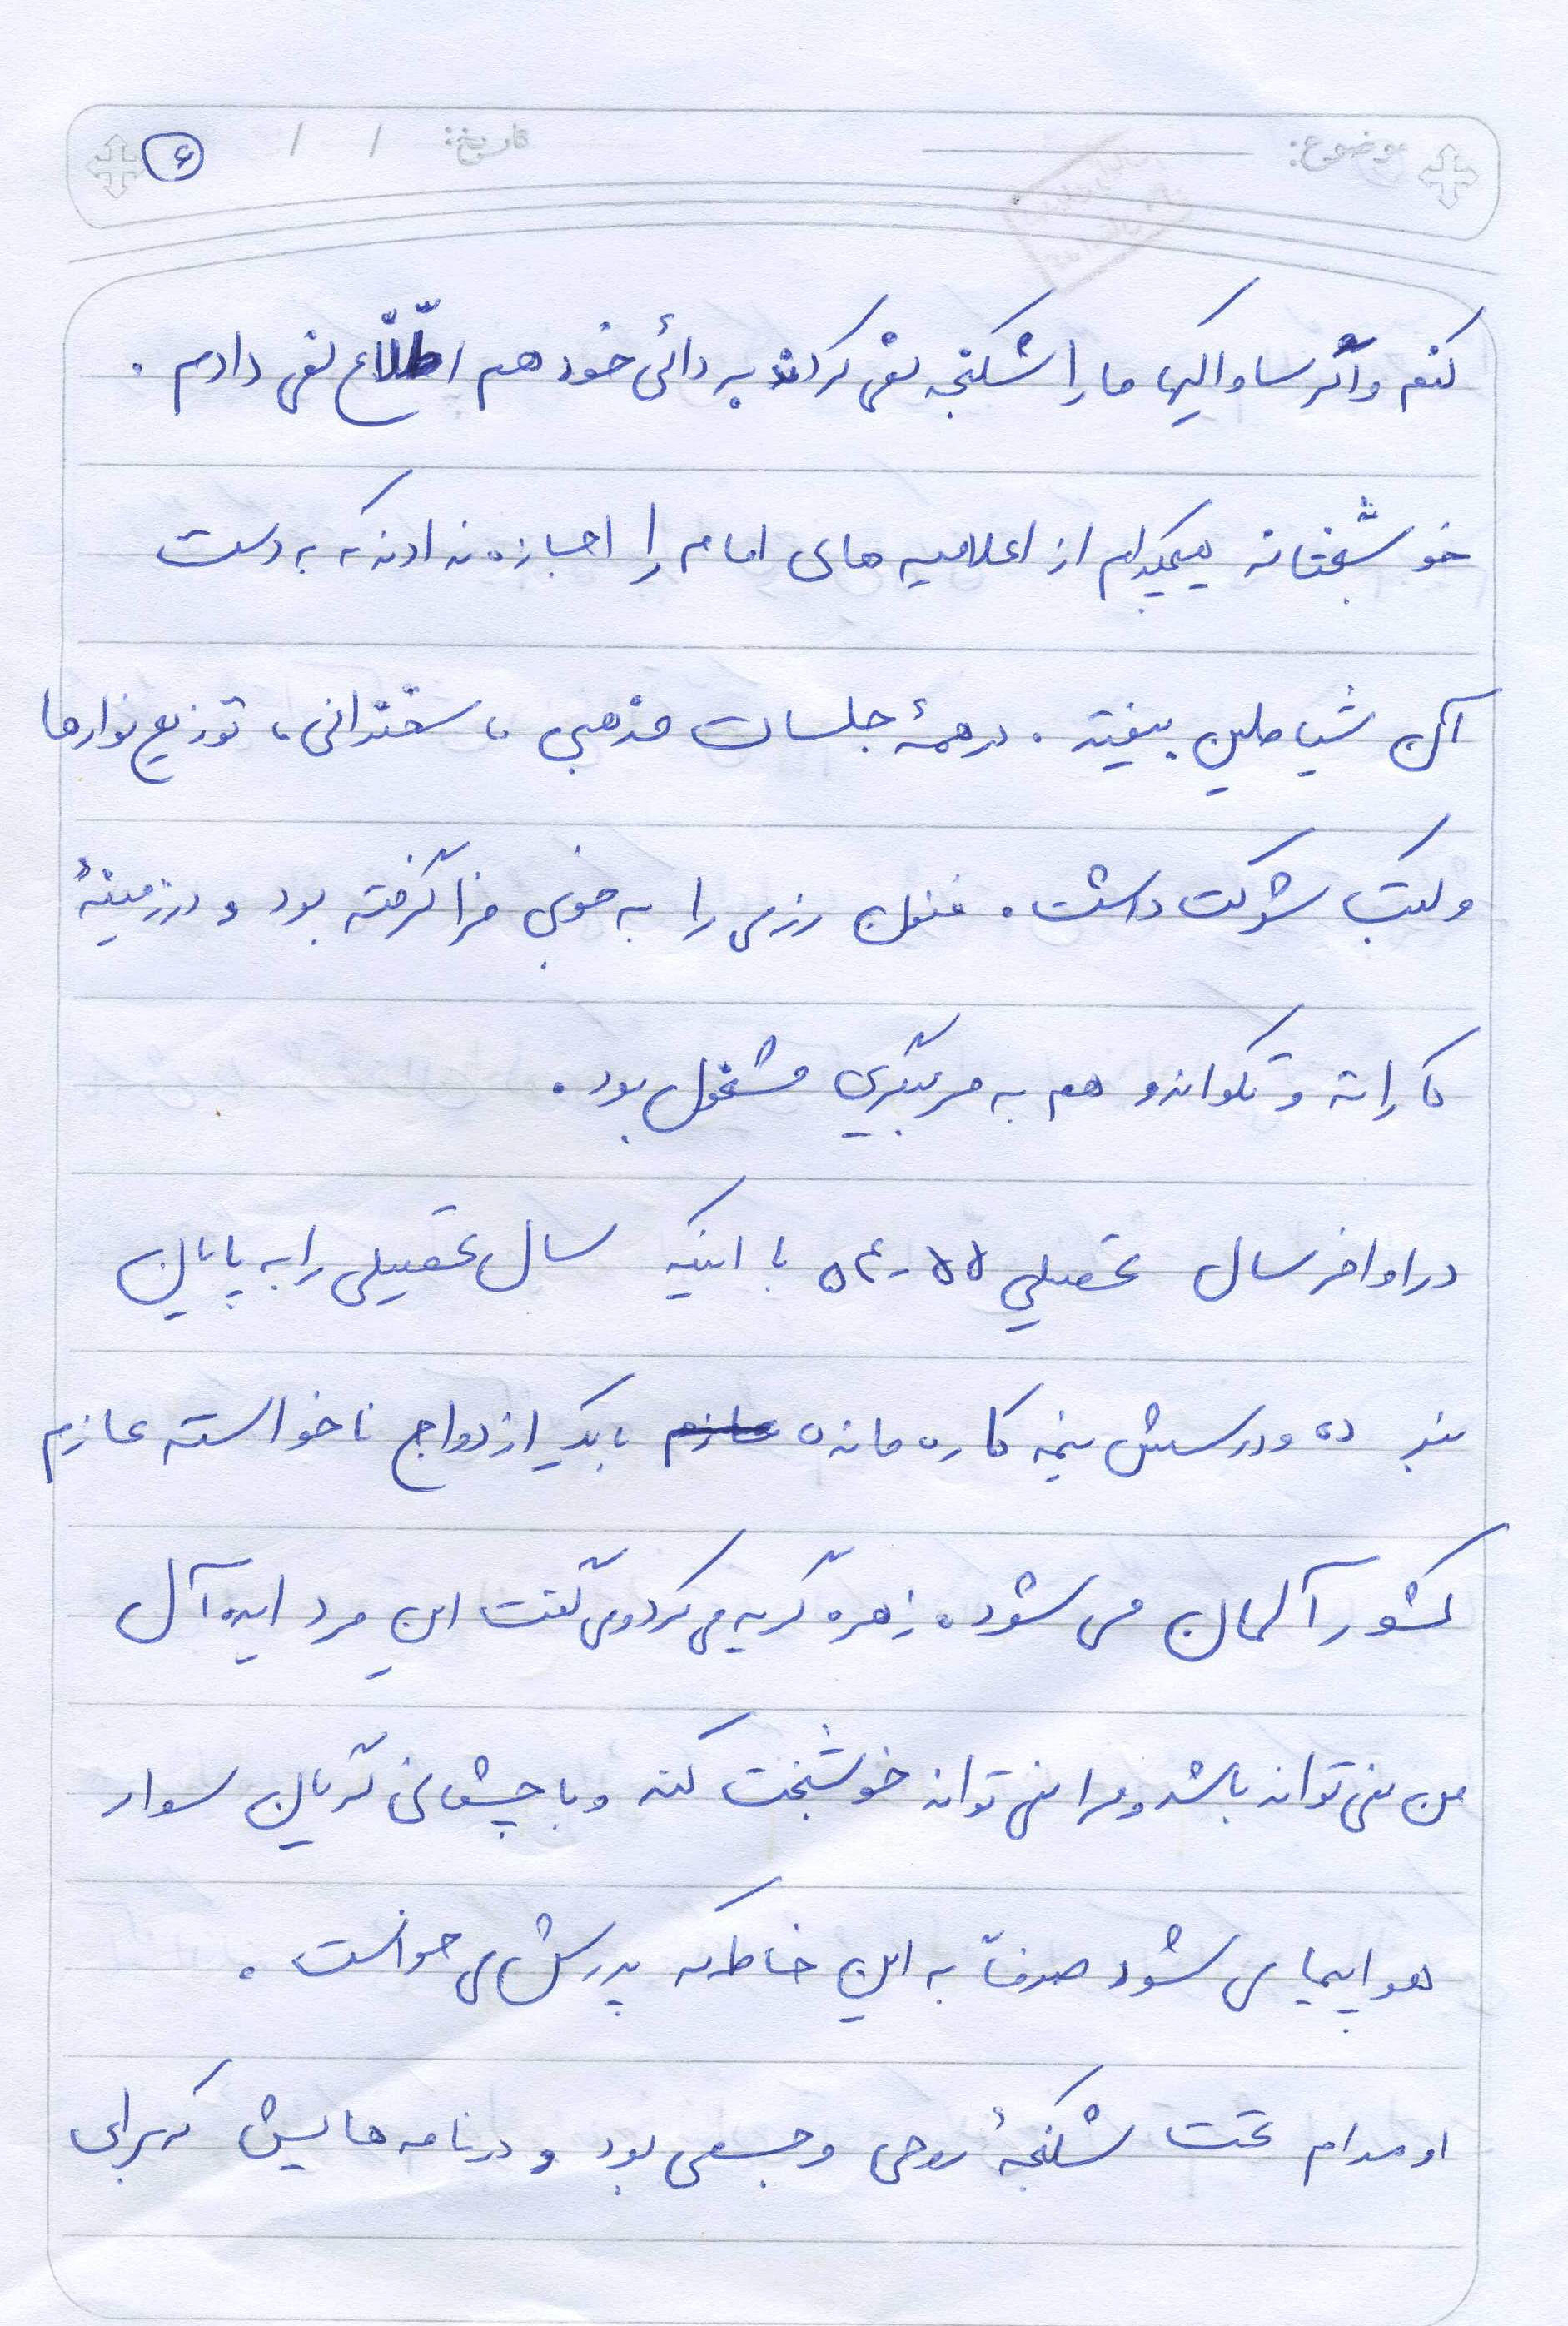 موضوع:
تاریخ: / /
۶
کنم و اگر ساواکیها ما را شکنجه نمی کردند به دائی خود هم اطّلاع نمی دادم .
خوشبختانه هیچکدام از اعلامیه های امام را اجازه ندادند که به دست
آن شیاطین بیفتد . در همهٔ جلسات مذهبی ، سخنرانی ، توزیع نوارها
و کتب شرکت داشت . فنون رزمی را به خوبی فرا گرفته بود و در زمینهٔ
کاراته و تکواندو هم به مربیگری مشغول بود .
در اواخر سال تحصیلی ۵۵-۵۴ با اینکه سال تحصیلی را به پایان
نبرده و درسش نیمه کاره مانده با یک ازدواج ناخواسته عازم
کشور آلمان می شود . زهره گریه می کرد و می گفت این مرد ایده آل
من نمی تواند باشد و مرا نمی تواند خوشبخت کند و با چشمانی گریان سوار
هواپیما می شود صرفاً به این خاطر که پدرش می خواست .
او مدام تحت شکنجهٔ روحی و جسمی بود و در نامه هایش که برای